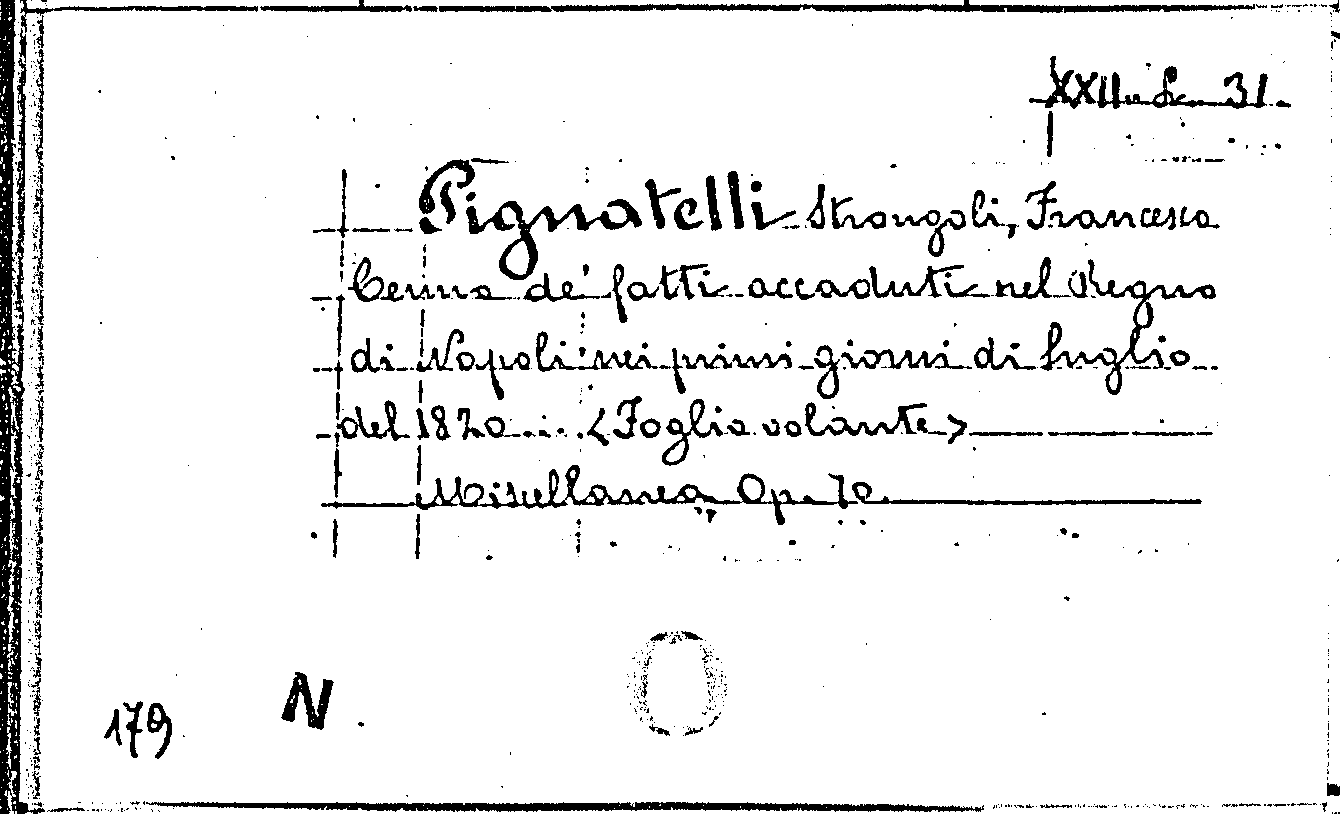 XXII. L. 31.
Pignatelli Strongoli, Francesco
Cenno de' fatti accaduti nel Regno
di Napoli nei primi giorni di luglio
del 1820 ... <Foglio volante>
Miscellanea Op. 70.
N
179